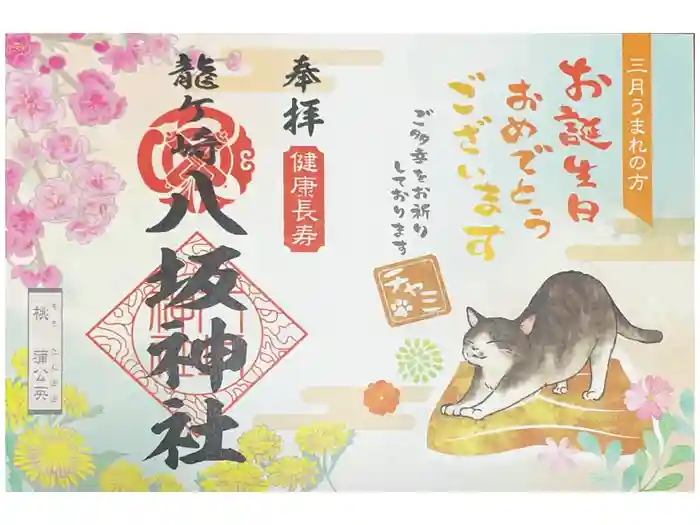 三月うまれの方
お誕生日
おめでとう
ございます
ご多幸をお祈り
しております
チャミ
奉拝
健康長寿
龍ケ崎八坂神社
桃
もも
蒲公英
たんぽぽ